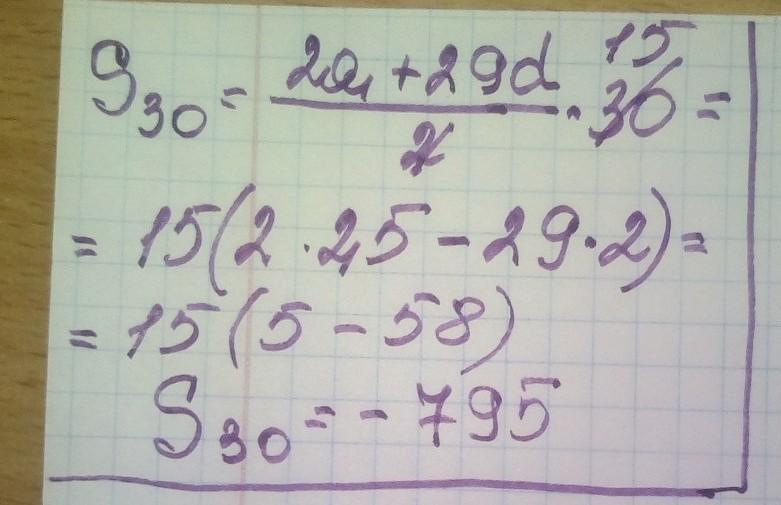 S₃₀ = (2a₁ + 29d)/2 · 30 = 15
= 15(2 · 25 - 29 · 2) =
= 15(5 - 58)
S₃₀ = - 795